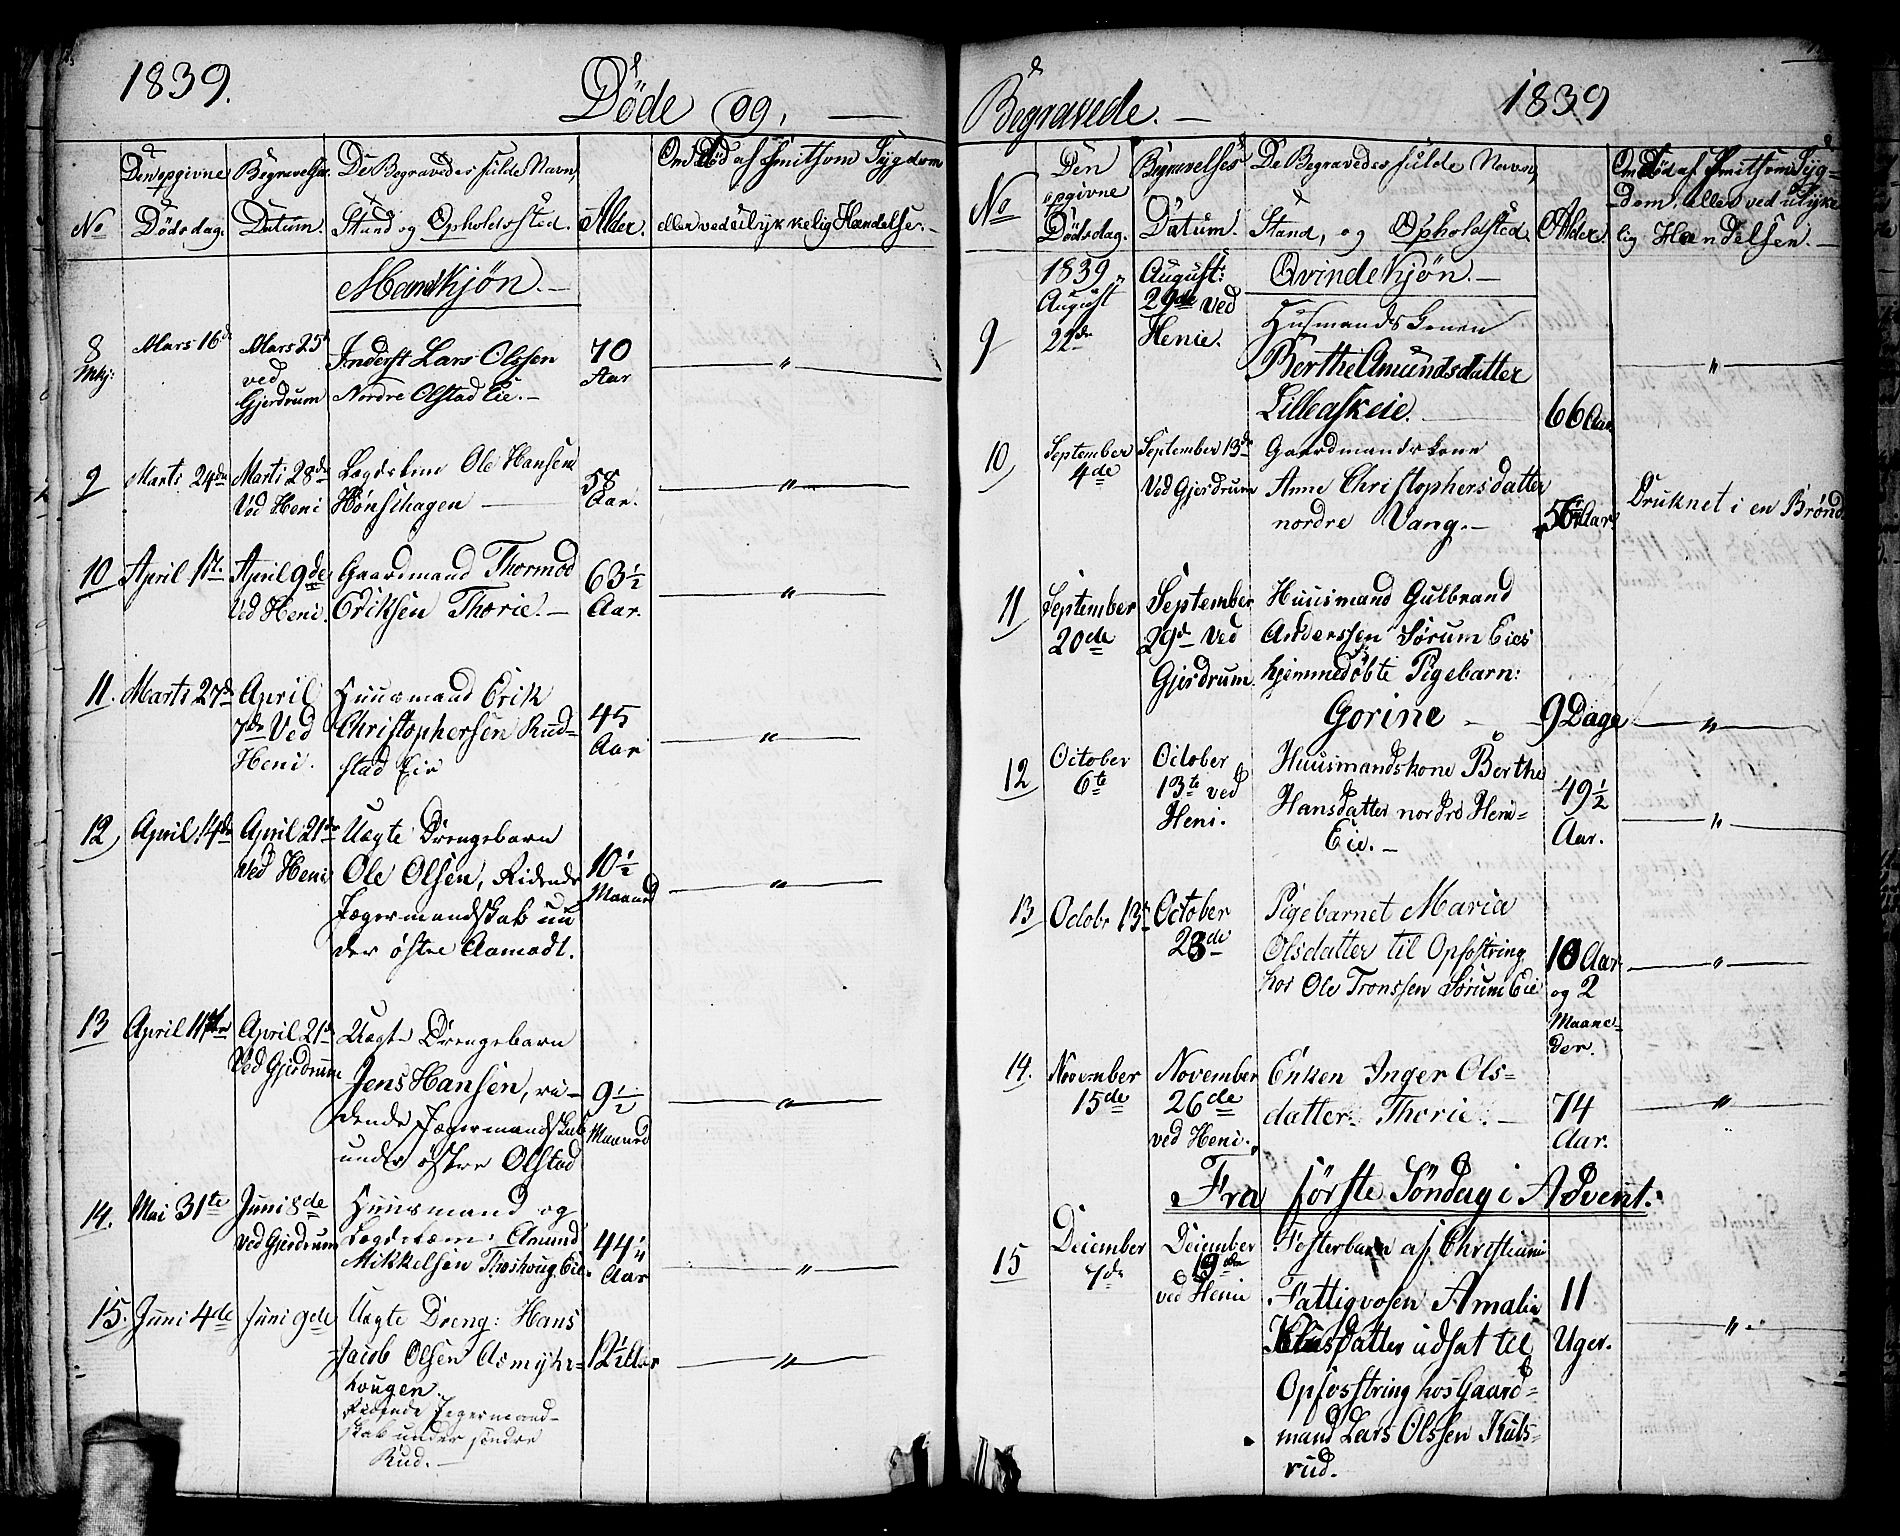 1839.
Døde og,
Den opgivne
Dödsdag.
Begravelses
Datum.
De Begravedes fulde Navn,
Stand og Opholdssted.
Alder.
Om død af smitsom Sygdom
eller ved ulykkelig Hændelse.
No
Mandkjøn.
8
Mkj:
Mars 16de
Mars 25de
ved
Gjerdrum
Inderst Lars Olssen
Nordre Olstad Eie.
70
Aar
"
9
Marts 24de
Marti 28de
Ved Heni
Lægdslem Ole Hansen
Hønsihagen
58
Aar.
"
10
April 1st.
April 9de
Ved Heni.
Gaardmand Thormod
Eriksen Thorie.
63½
Aar.
"
11.
Marti 27de
April
7de Ved
Heni.
Huusmand Erik
Christophersen Rud=
stad Eie
45
Aar
"
12
April 14de
April 21de
ved Heni
Uægte Drengebarn
Ole Olsen, Ridende
Jægermandskab un
der østre Aamodt.
10½
Maaned
"
13
April 11te
April 21de
Ved Gjerdrum
Uægte Drengebarn
Jens Hansen, ri-
dende Jægermandskab
under østre Olstad
9½
Maaned
"
14.
Mai 31te
Juni 8de
ved Gjerdrum
Huusmand og
Lægdslem: Amund
Mikkelsen Throshoug Eie.
44¼
Aar
"
15.
Juni 4de
Juni 9de
Uægte Dreng: Hans
Jacob Olsen Asmyhr=
hougen.
Ridende Jegermand-
skab under söndre
Rud.
12½ Aar
"
Begravede.
1839
No
Den
opgivne
Dødsdag.
Begravelses
Datum.
De Begravedes fulde Navn,
Stand, og Opholdsted
Alder.
Om død af smitsom Syg=
dom, eller ved ulykke
lig Hændelsen.
Qvindekjøn.
9
1839
August
22de
August:
29de ved
Henie.
Husmands Konen
Berthe Amundsdatter
Lilleaskeie.
66 Aar
"
10
September
4de
September 13de
Ved Gjerdrum
Gaardmandskone
Anne Christophersdatter
nordre Vang.
56½ Aar
Druknet i en Brönd
11
September
20de
September
29de Ved
Gjerdrum
Huusmand Gulbrand
Anderssen Sørum Eies
hjemmedøbte Pigebarn:
Gorine
9 Dage
"
12
October
6te
October
13te ved
Heni.
Huusmandskone Berthe
Hansdatter nordre Heni=
Eie.
49½
Aar.
"
13
Octobr 13de
October
23de
Pigebarnet Maria
Olsdatter til Opfostring
hos Ole Tronssen Sørum Eie
10 Aar
og 2
Maane=
der.
"
14.
November
15de
November
26de
ved Heni.
Enken Inger Ols=
datter: Thorie.
74
Aar.
"
Fra første Söndag i Advent:
15
December
7de
December
19de
ved Henie
Fosterbarn af Christiania
Fattigvæsen Amalia
datter udsat til
Opfosstring hos Gaard=
mand Lars Olssen Kuls=
rud.
11
Uger.
"